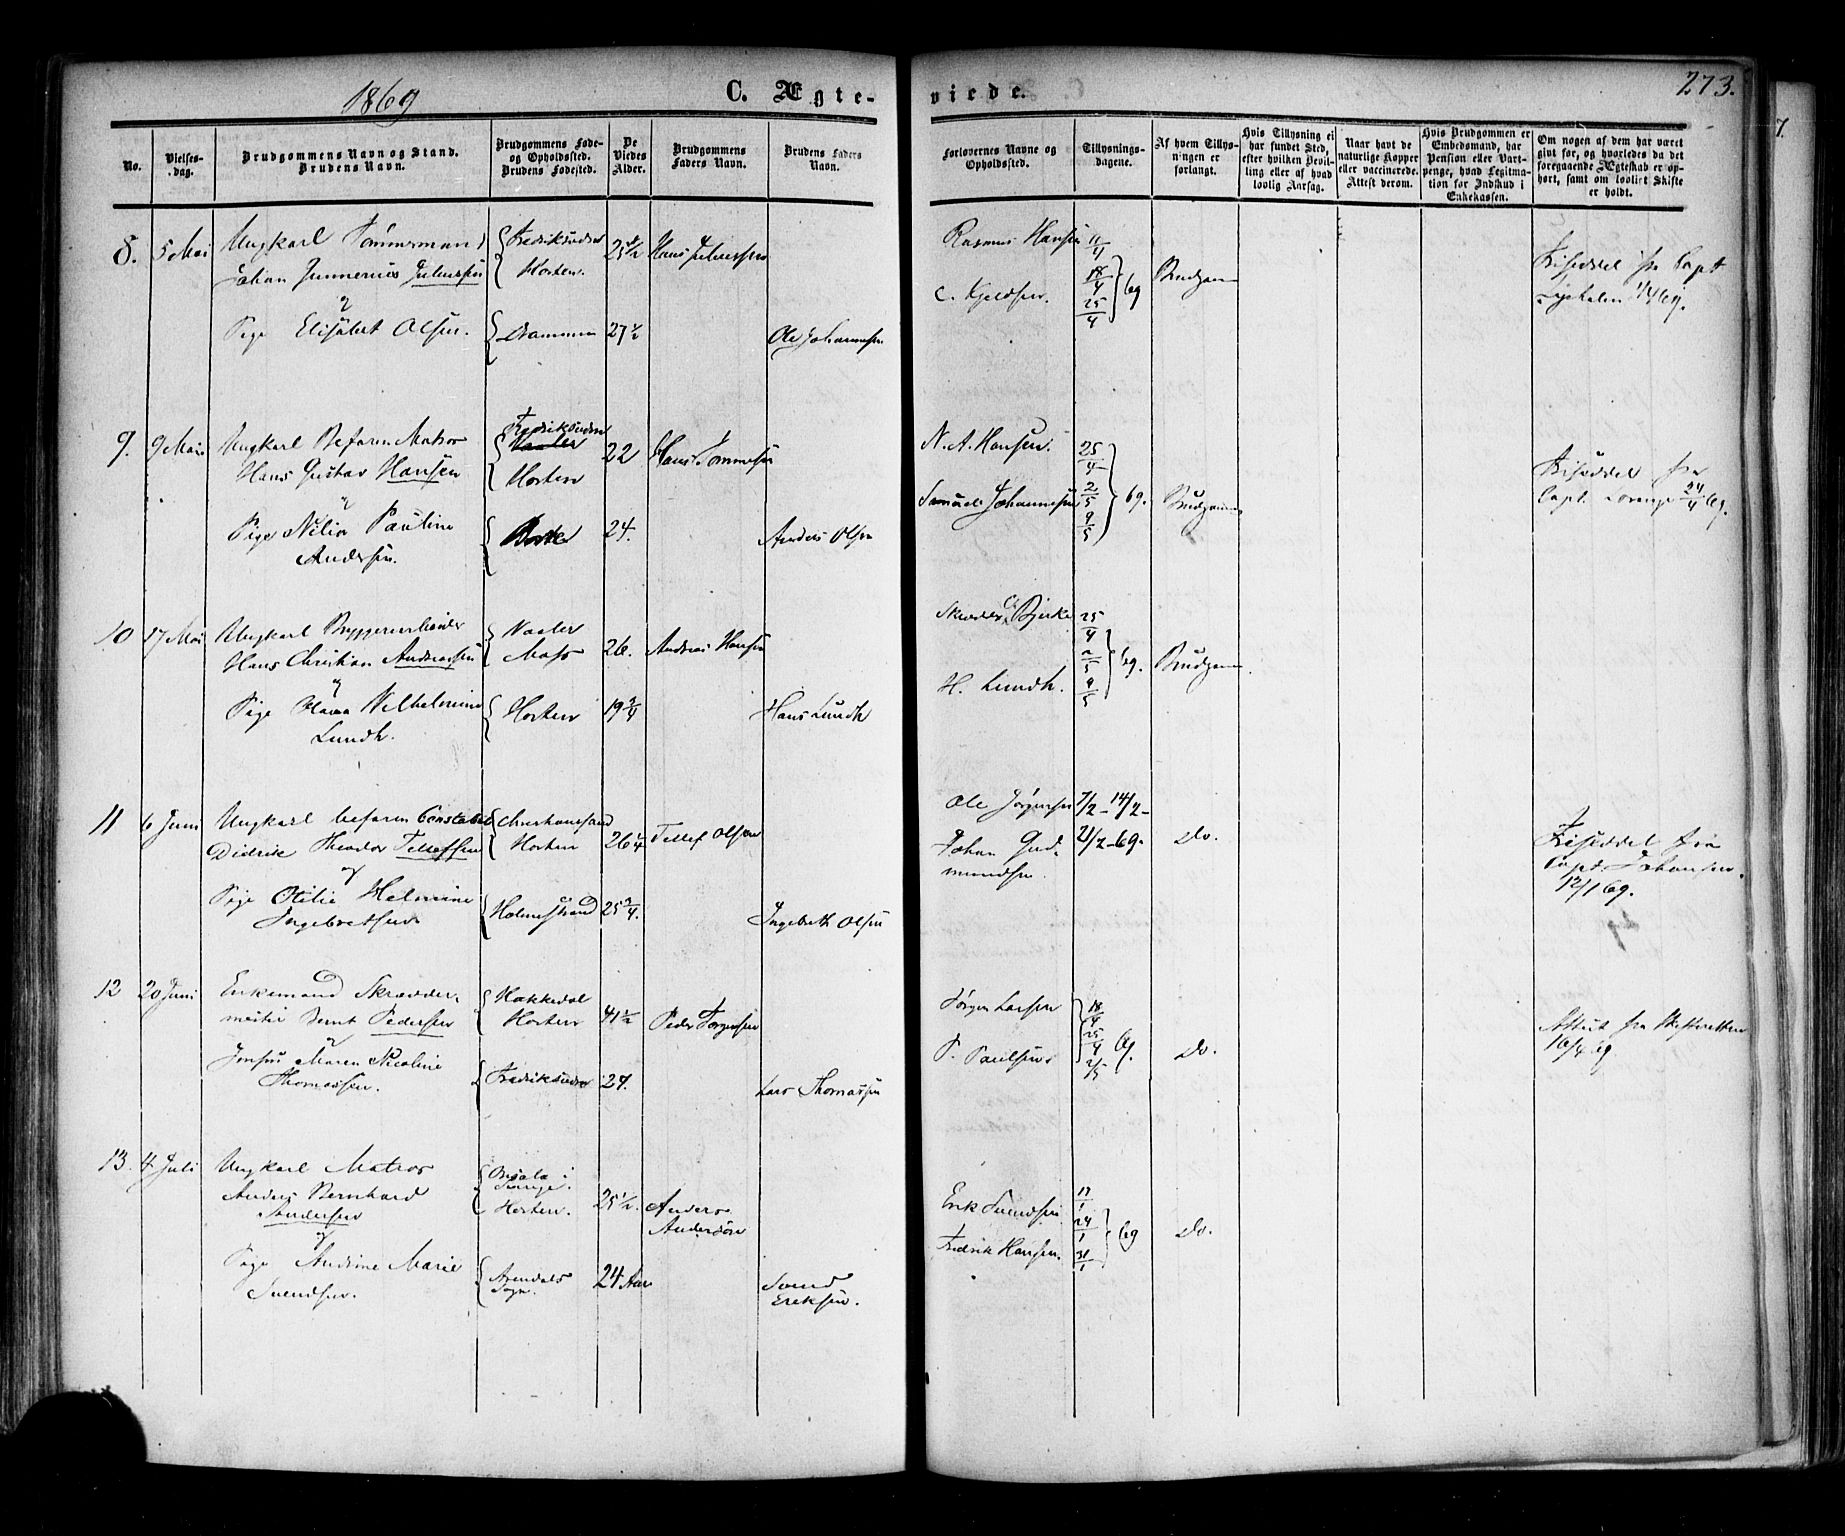 1869
C. Ægte-
viede.
273.
No.
Vielses-
dag.
Brudgommens Navn og Stand.
Brudens Navn.
Brudgommens Føde-
og Opholdssted.
Brudens Fødested.
De
Viedes
Alder.
Brudgommens
Faders Navn.
Brudens Faders
Navn.
Forlovernes Navne og
Opholdssted.
Tillysnings-
dagene.
Af hvem Tillys-
ningen er
forlangt.
Hvis Tillysning ei
har fundet Sted,
efter hvilken Bevil-
ling eller af hvad
lovlig Aarsag.
Naar havt de
naturlige Kopper
eller vaccinerede.
Attest derom.
Hvis Brudgommen er
Embedsmand, har
Pension eller Vart-
penge, hvad Legitima-
tion for Indskud i
Enkekassen.
Om nogen af dem har været
gift før, og hvorledes da det
foregaaende Ægteskab er op-
hørt, samt om lovligt Skifte
er holdt.
8. 5 Mai Ungkarl Tømmermand Fredriksværn 25 1/2 Hans Juliussen Rasmus Hansen 11/4
Johan Gunnerius Juliussen Horten. 18/4 69 Brudgom
&
C. Kjeldsen. 25/4
Pige Elisabet Olsen. Drammen 27 1/2 Ole Johannesen
9. 9 Mai Ungkarl Befaren Matros Fredriksværn 22 Hans N. A. Hansen. 25/4
Hans Gustav Hansen Horten Samuel Johannesen 2/5 69. Brudgommen
& 9/5
Pige Pauline 24. Anders Olsen
Andersen.
Capt. Lorange 24/4 69.
10 17 Mai Ungkarl Vaaler 26. Andreas Hansen Skrædder Bjerke 25/4
Hans Christian Andreassen Moss 2/5 69. Brudgom
& H. Lundh. 9/5
Pige Vilhelmine Horten 19 3/4 Hans Lundh
Lundh.
11 6 Juni Ungkarl befaren Constabel Christianssand 26 1/4 Tellef Olsen Ole Jørgensen 7/2 - 14/2 -
Didrik Theodor Tellefsen Horten Johan Gud- 21/2 - 69. Do.
& mundsen.
Pige Otilie Helmine Holmestrand 25 3/4. Ingebreth Olsen
Ingebretsen
Capt. Johansen.
12/1 69.
12 20 Juni Enkemand Skrædder- Hakkedal 41 1/2 Peder Jørgensen Jørgen Larsen 18/4
mester Bernt Pedersen Horten 25/4 69. Do.
& P. Paulsen 2/5
Maren Nicoline Fredriksværn 27. Lars Thomassen
Thomassen.
Attest fra Skifteretten
16/4 69.
13. 4 Juli Ungkarl Matros i 25 1/2. Anders Erik Svendsen 17/1
Anders Bernhard Horten. Andersön 24/1 69 Do.
Andersen Fredrik Hansen. 31/1
&
Pige Andrine Marie Arendals 24 Aar Svend
Svendsen. Sogn. Eriksen.